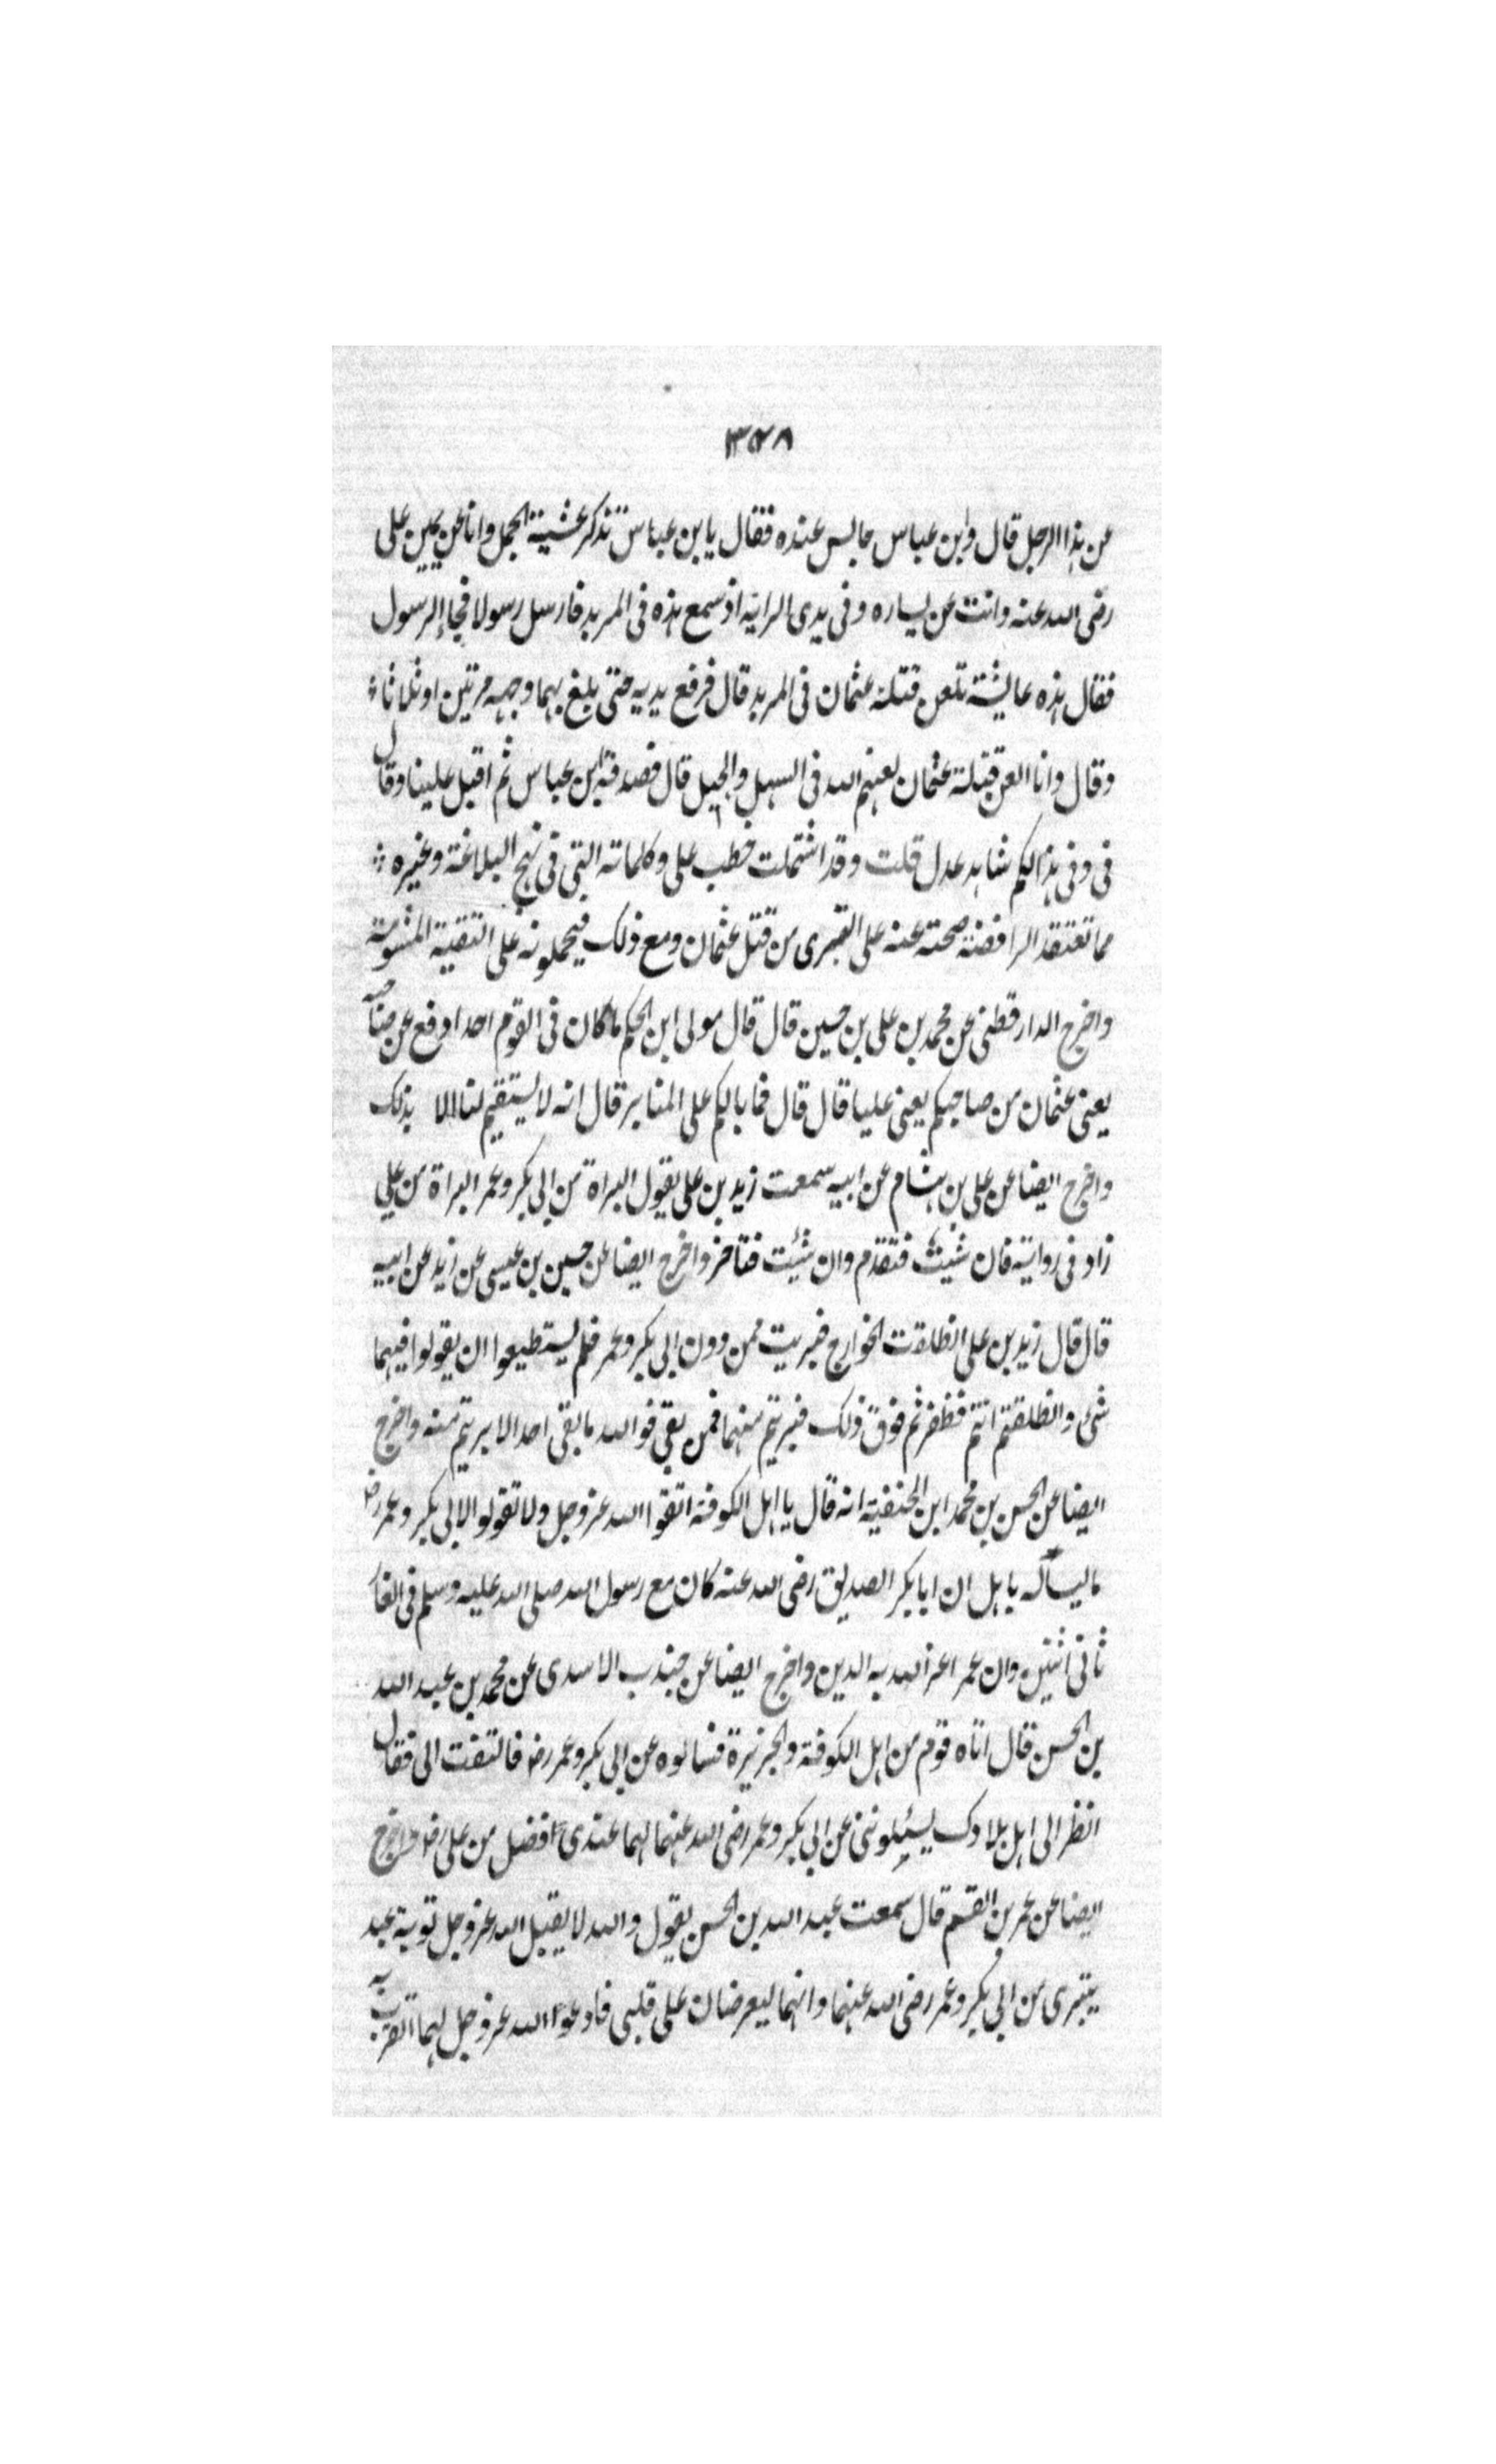 ٣٥٨
عن هذا الرجل قال وابن عباس جالس عنده فقال يا بن عباس تذكر عشية الجمل وانا عن يمين على
رضى الله عنه وانت عن يساره وفى يدى الراية اذ سمع هذه فى المربد فارسل رسولا فجاء الرسول
فقال هذه عايشة تلعن قتلة عثمان فى المربد قال فرفع يديه حتى بلغ بهما وجهه مرتين او ثلاثا
وقال وانا العن قتلة عثمان لعنهم الله فى السهل والجبل قال فصدقه ابن عباس ثم اقبل علينا وقال
فى وفى هذا لكم شاهد عدل قلت وقد اشتملت خطب على وكلماته التى فى نهج البلاغة وغيره
مما تعتقد الرافضة صحته عنه على التبرى من قتل عثمان ومع ذلك فيحملونه على التقية المشومة
واخرج الدارقطنى عن محمد بن على بن حسين قال قال مولى ابن الحكم ما كان فى القوم احد ادفع عن صاحبنا
يعنى عثمان من صاحبكم يعنى عليا قال قال فما بالكم على المنابر قال انه لا يستقيم لنا الا بذلك
واخرج ايضا عن على بن هشام عن ابيه سمعت زيد بن على يقول البراة من ابى بكر وعمر البراة من على
زاد فى رواية فان شئت فتقدم وان شئت فتاخر واخرج ايضا عن حسين بن عيسى عن زيد عن ابيه
قال قال زيد بن على انطلقت الخوارج فبريت ممن دون ابى بكر وعمر فلم يستطيعوا ان يقولوا فيهما
شئ وانطلقتم انتم فظفرتم فوق ذلك فبريتم منهما فمن بقى فوالله ما بقى احد الا بريتم منه واخرج
ايضا عن الحسن بن محمد ابن الحنفية انه قال يا اهل الكوفة اتقوا الله عز وجل ولا تقولوا لابى بكر وعمر رض
ما ليسا له باهل ان ابا بكر الصديق رضى الله عنه كان مع رسول الله صلى الله عليه وسلم فى الغار
ثانى اثنين وان عمر اعز الله به الدين واخرج ايضا عن جندب الاسدى عن محمد بن عبد الله
بن الحسن قال اتاه قوم من اهل الكوفة والجزيرة فسالوه عن ابى بكر وعمر رض فالتفت الى فقال
انظر الى اهل بلادك يسئلوننى عن ابى بكر وعمر رضى الله عنهما لهما عندى افضل من على رض واخرج
ايضا عن عمر بن القسم قال سمعت عبد الله بن الحسن يقول والله لا يقبل الله عز وجل توبة عبد
يتبرى من ابى بكر وعمر رضى الله عنهما وانهما ليعرضان على قلبى فادعو الله عز وجل لهما اتقرب به